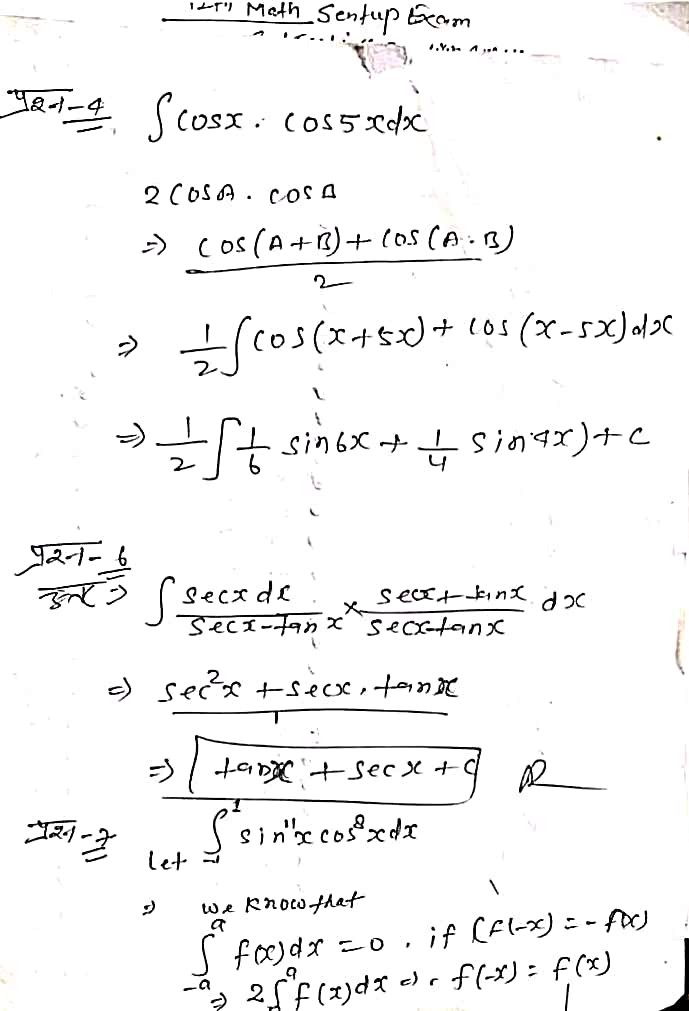 12th Math Sentup Exam
प्रश्न-4 ∫ cosx . cos5xdx
2 cosA . cosB
⇒ cos(A+B)+cos(A-B)
2
⇒ 1/2 ∫cos(x+5x)+cos(x-5x)dx
⇒ 1/2 ∫ 1/6 sin6x + 1/4 sin4x)+c
प्रश्न-6
उत्तर ⇒ ∫ secxdx / secx-tanx × secx+tanx / secx+tanx dx
⇒ sec²x + secx . tanx
1
⇒ tanx + secx + c
प्रश्न-7 ∫₋₁¹ sin¹¹x cos⁸xdx
Let
⇒ we know that
∫₋ₐᵃ f(x)dx = 0 . if (f(-x) = -f(x)
⇒ 2∫ᵃ f(x)dx ⇒ f(-x) = f(x)